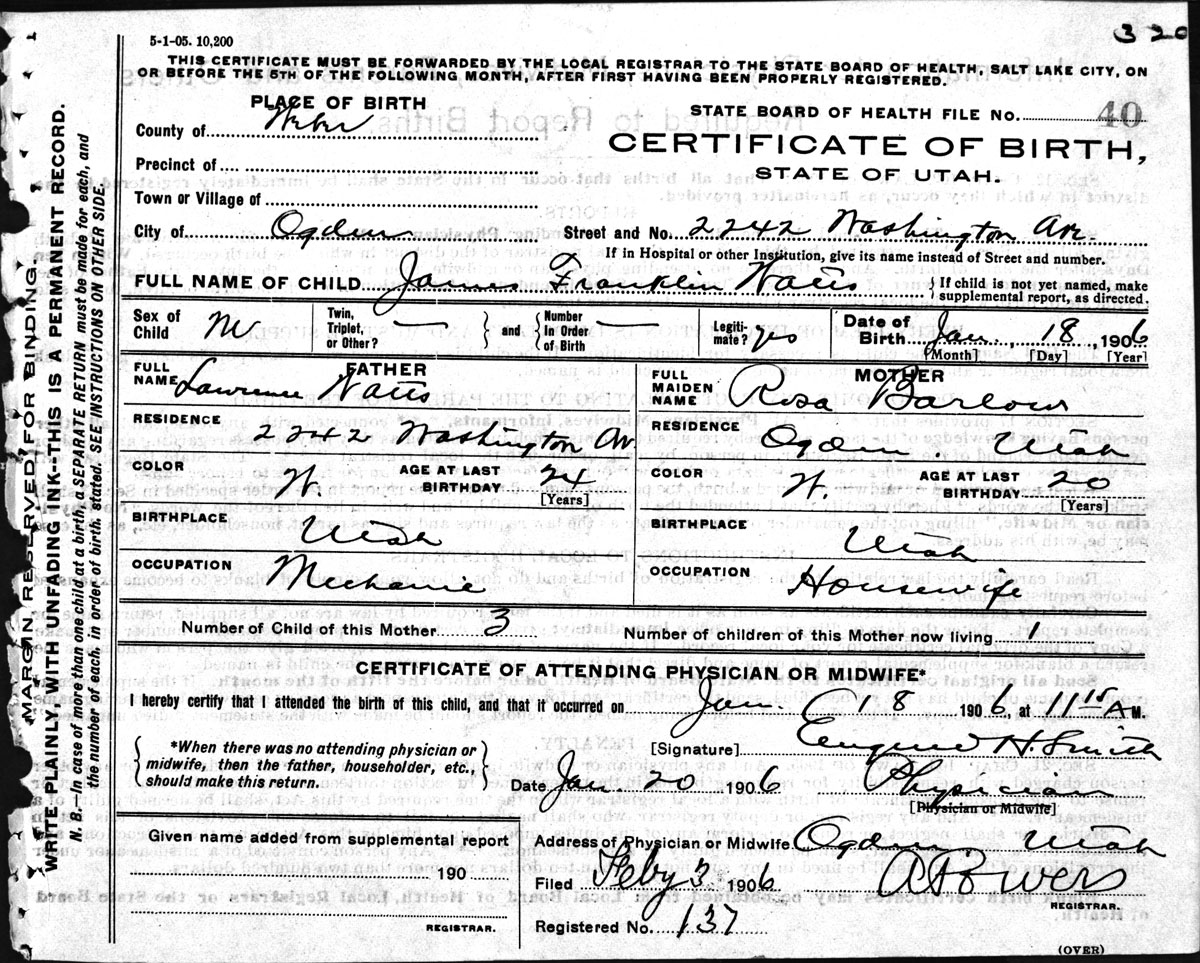 320
5-1-05. 10,200
THIS CERTIFICATE MUST BE FORWARDED BY THE LOCAL REGISTRAR TO THE STATE BOARD OF HEALTH, SALT LAKE CITY, ON
OR BEFORE THE 5TH OF THE FOLLOWING MONTH, AFTER FIRST HAVING BEEN PROPERLY REGISTERED.
PLACE OF BIRTH
STATE BOARD OF HEALTH FILE No. 40
County of Weber
CERTIFICATE OF BIRTH,
Precinct of
STATE OF UTAH.
Town or Village of
City of Ogden Street and No. 2242 Washington Av.
If in Hospital or other Institution, give its name instead of Street and number.
FULL NAME OF CHILD James Franklin Watts { If child is not yet named, make supplemental report, as directed.
Sex of Child M Twin, Triplet, or Other? — } and { Number in Order of Birth — Legiti- mate? yes Date of Birth Jan, 18, 1906
[Month] [Day] [Year]
FATHER MOTHER
FULL NAME Lawrence Watts FULL MAIDEN NAME Rosa Barlow
RESIDENCE 2242 Washington Av RESIDENCE Ogden. Utah
COLOR W. AGE AT LAST BIRTHDAY 24 [Years] COLOR W. AGE AT LAST BIRTHDAY 20 [Years]
BIRTHPLACE Utah BIRTHPLACE Utah
OCCUPATION Mechanic OCCUPATION Housewife
Number of Child of this Mother 3 Number of children of this Mother now living 1
CERTIFICATE OF ATTENDING PHYSICIAN OR MIDWIFE*
I hereby certify that I attended the birth of this child, and that it occurred on Jan. 18 1906, at 11 15 A M.
{ *When there was no attending physician or midwife, then the father, householder, etc., should make this return. }
[Signature] Eugene H. Smith
Date Jan 20 1906 Physician
[Physician or Midwife]
Given name added from supplemental report
190
REGISTRAR.
Address of Physician or Midwife Ogden. Utah
Filed Feby 3 1906
REGISTRAR.
Registered No. 137
(OVER)
MARGIN RESERVED FOR BINDING
WRITE PLAINLY WITH UNFADING INK--THIS IS A PERMANENT RECORD.
N. B.—In case of more than one child at a birth, a SEPARATE RETURN must be made for each, and
the number of each, in order of birth, stated. SEE INSTRUCTIONS ON OTHER SIDE.